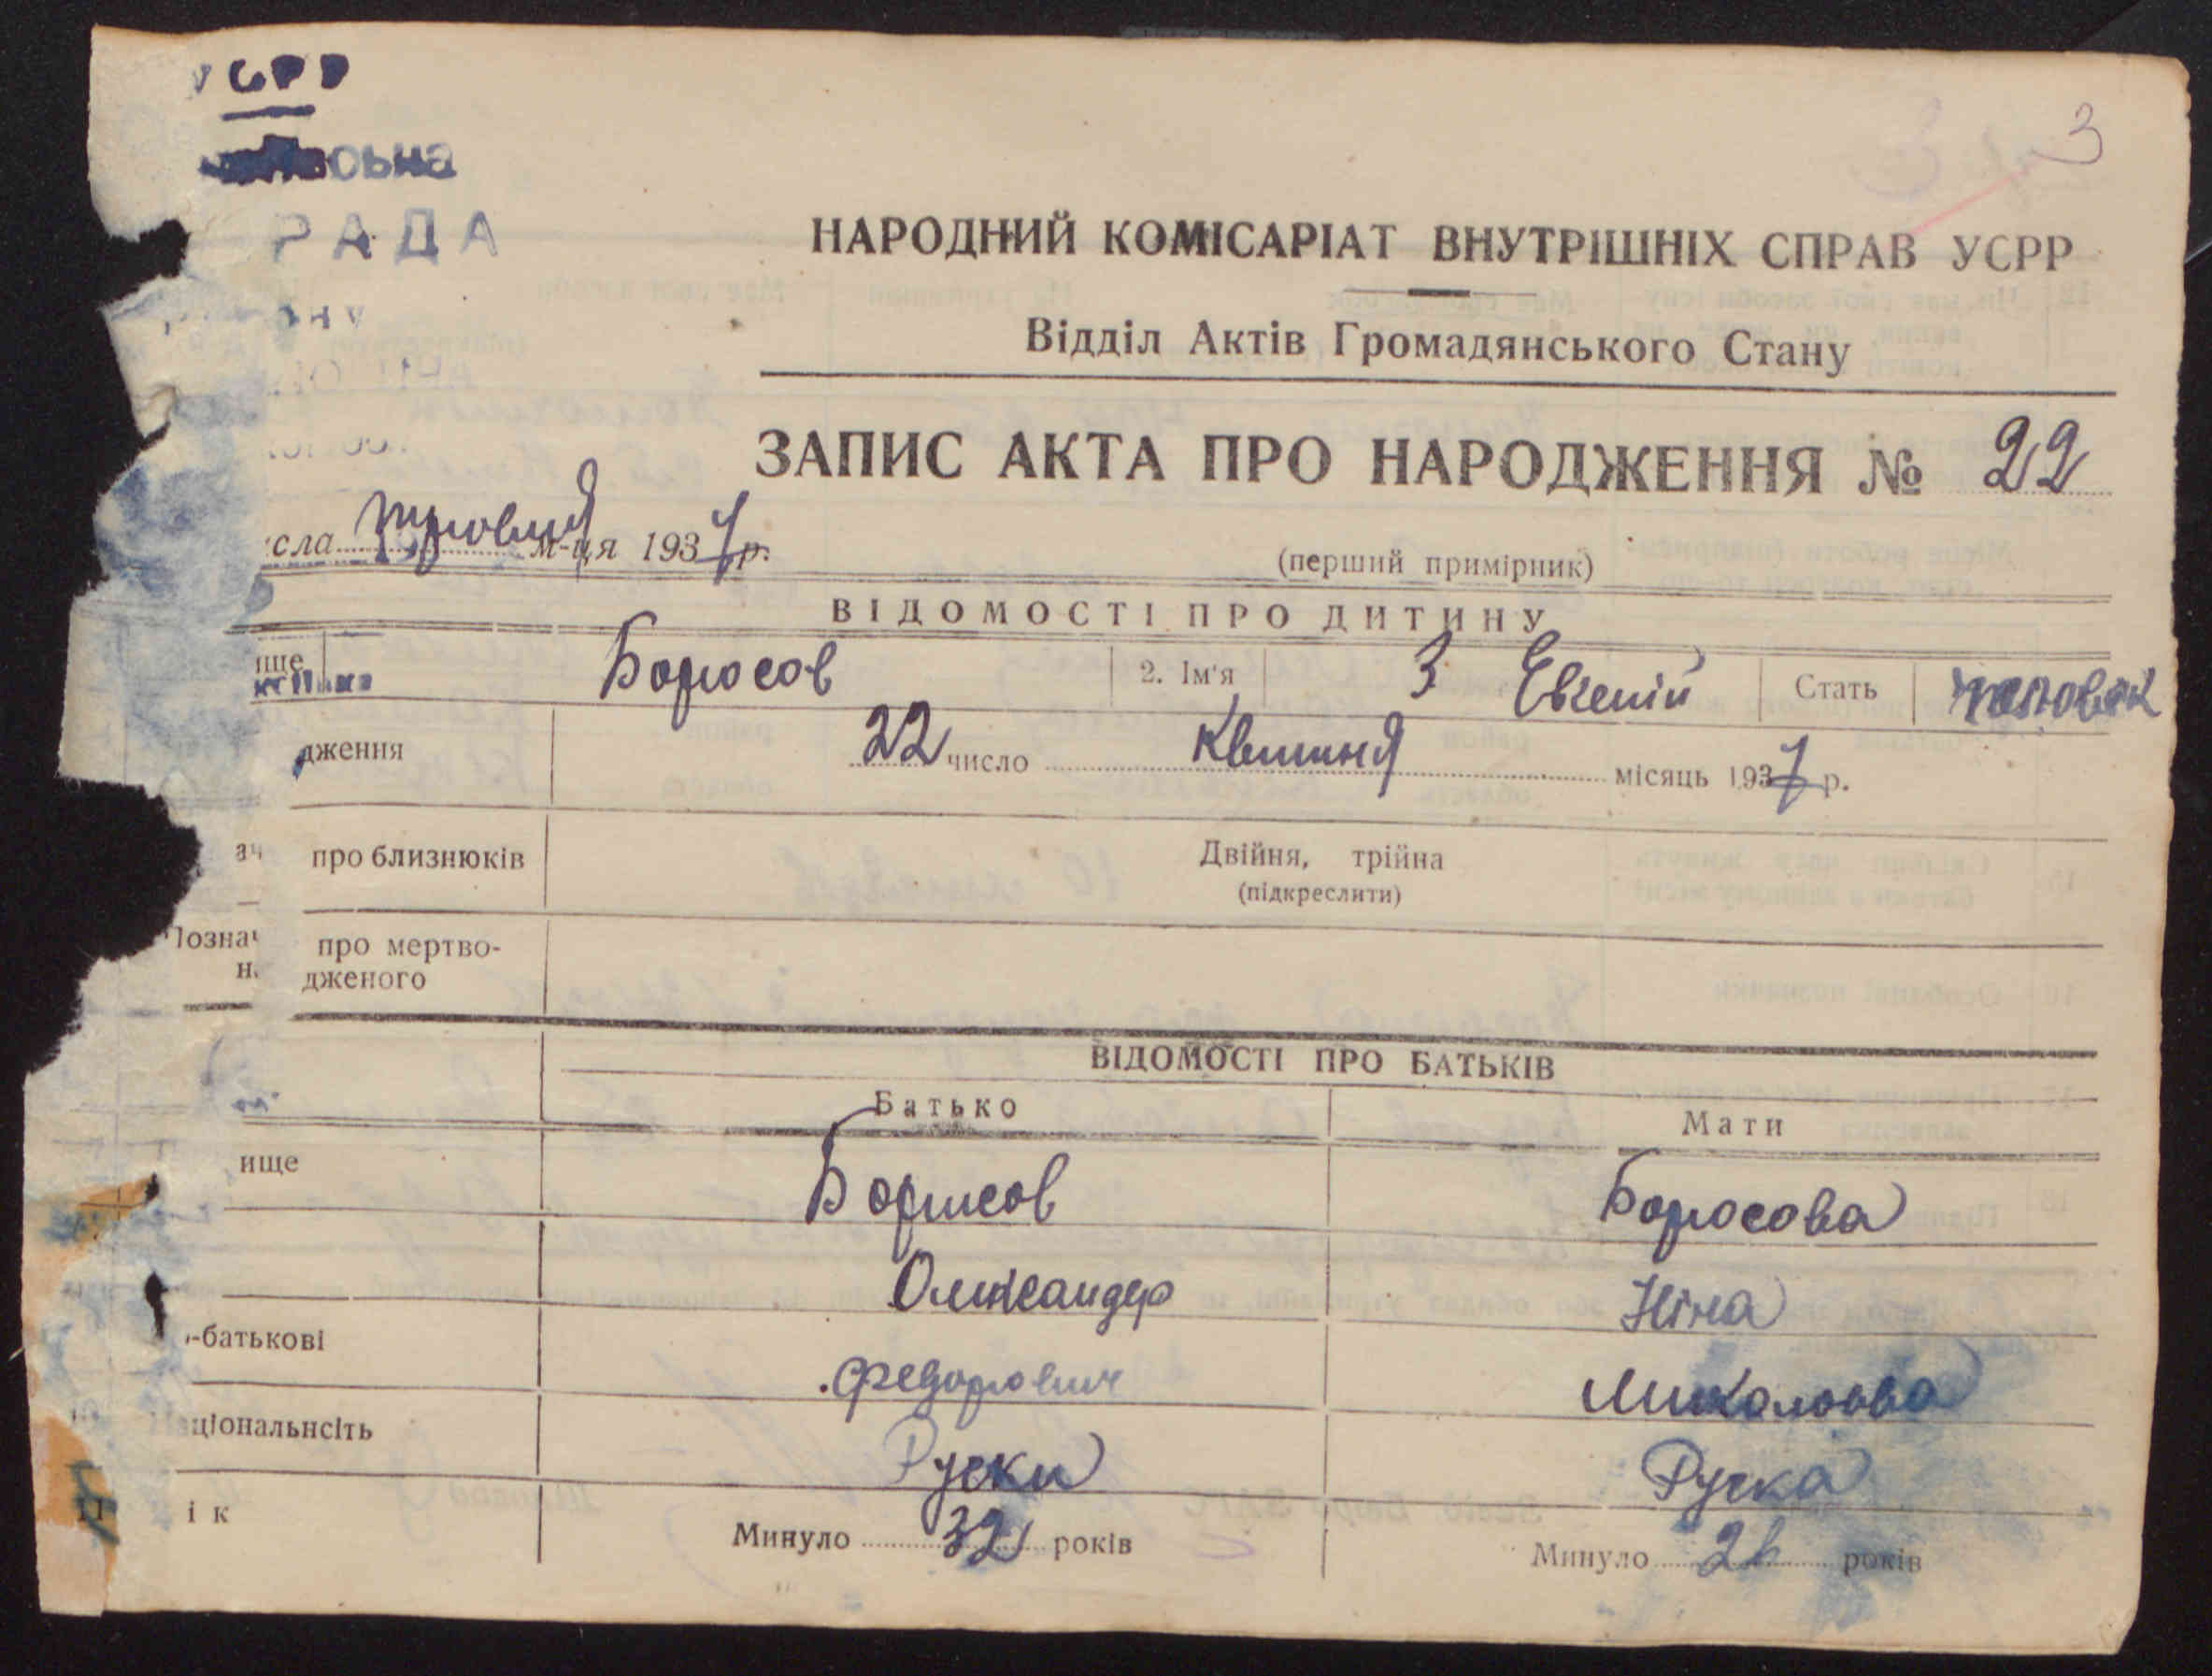 УСРР
РАДА
3
НАРОДНИЙ КОМІСАРІАТ ВНУТРІШНІХ СПРАВ УСРР
Відділ Актів Громадянського Стану
ЗАПИС АКТА ПРО НАРОДЖЕННЯ № 22
сла травня м-ця 1937 р.
(перший примірник)
ВІДОМОСТІ ПРО ДИТИНУ
ище Борисов 2. Ім'я 3 Евгеній Стать чоловік
дження 22 число Квитня місяць 1937 р.
про близнюків Двійня, трійна
(підкреслити)
Познач про мертво-
н. дженого
ВІДОМОСТІ ПРО БАТЬКІВ
Батько Мати
ище Борисов Борисова
Олександер Ніна
-батькові Федорович Миколовва
аціональнсіть Руски Руска
11 ік Минуло 32 років Минуло 26 років